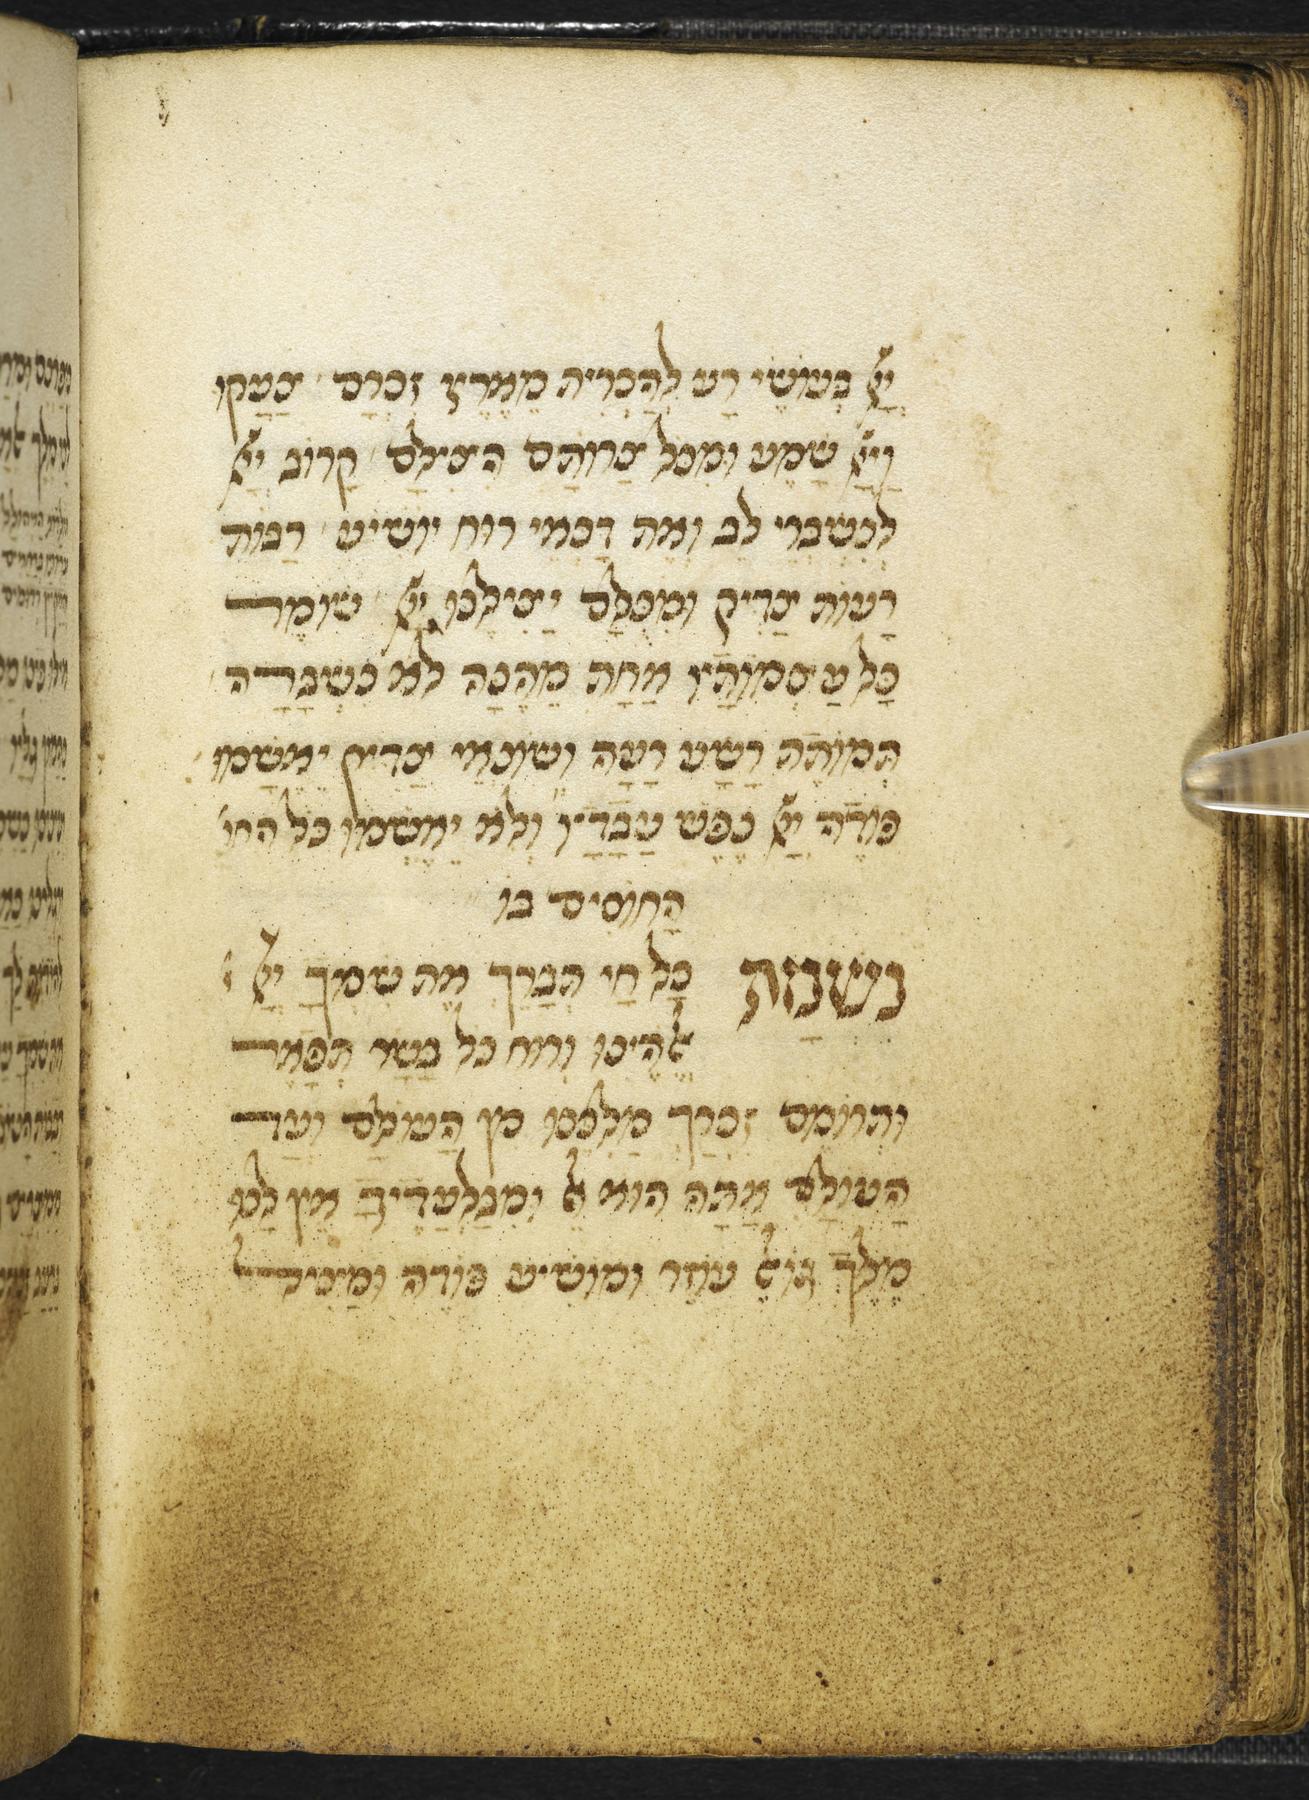 יי בעושי רע להכרית מארץ זכרם צעקו
ויי שמע ומכל צרותם הצילם קרוב יי
לנשברי לב ואת דכאי רוח יושיע רבות
רעות צדיק ומכלם יצילנו יי שומר
כל עצמותיו אחת מהנה לא נשברה
תמותת רשע רעה ושונאי צדיק יאשמו
פודה יי נפש עבדיו ולא יאשמו כל הח
החוסים בו
נשמת כל חי תברך את שמך יי
אלהינו ורוח כל בשר תפאר
ותרומם זכרך מלכנו מן העולם ועד
העולם אתה הוא אל ומבלעדיך אין לנו
מלך גואל עוזר ומושיע פודה ומציל